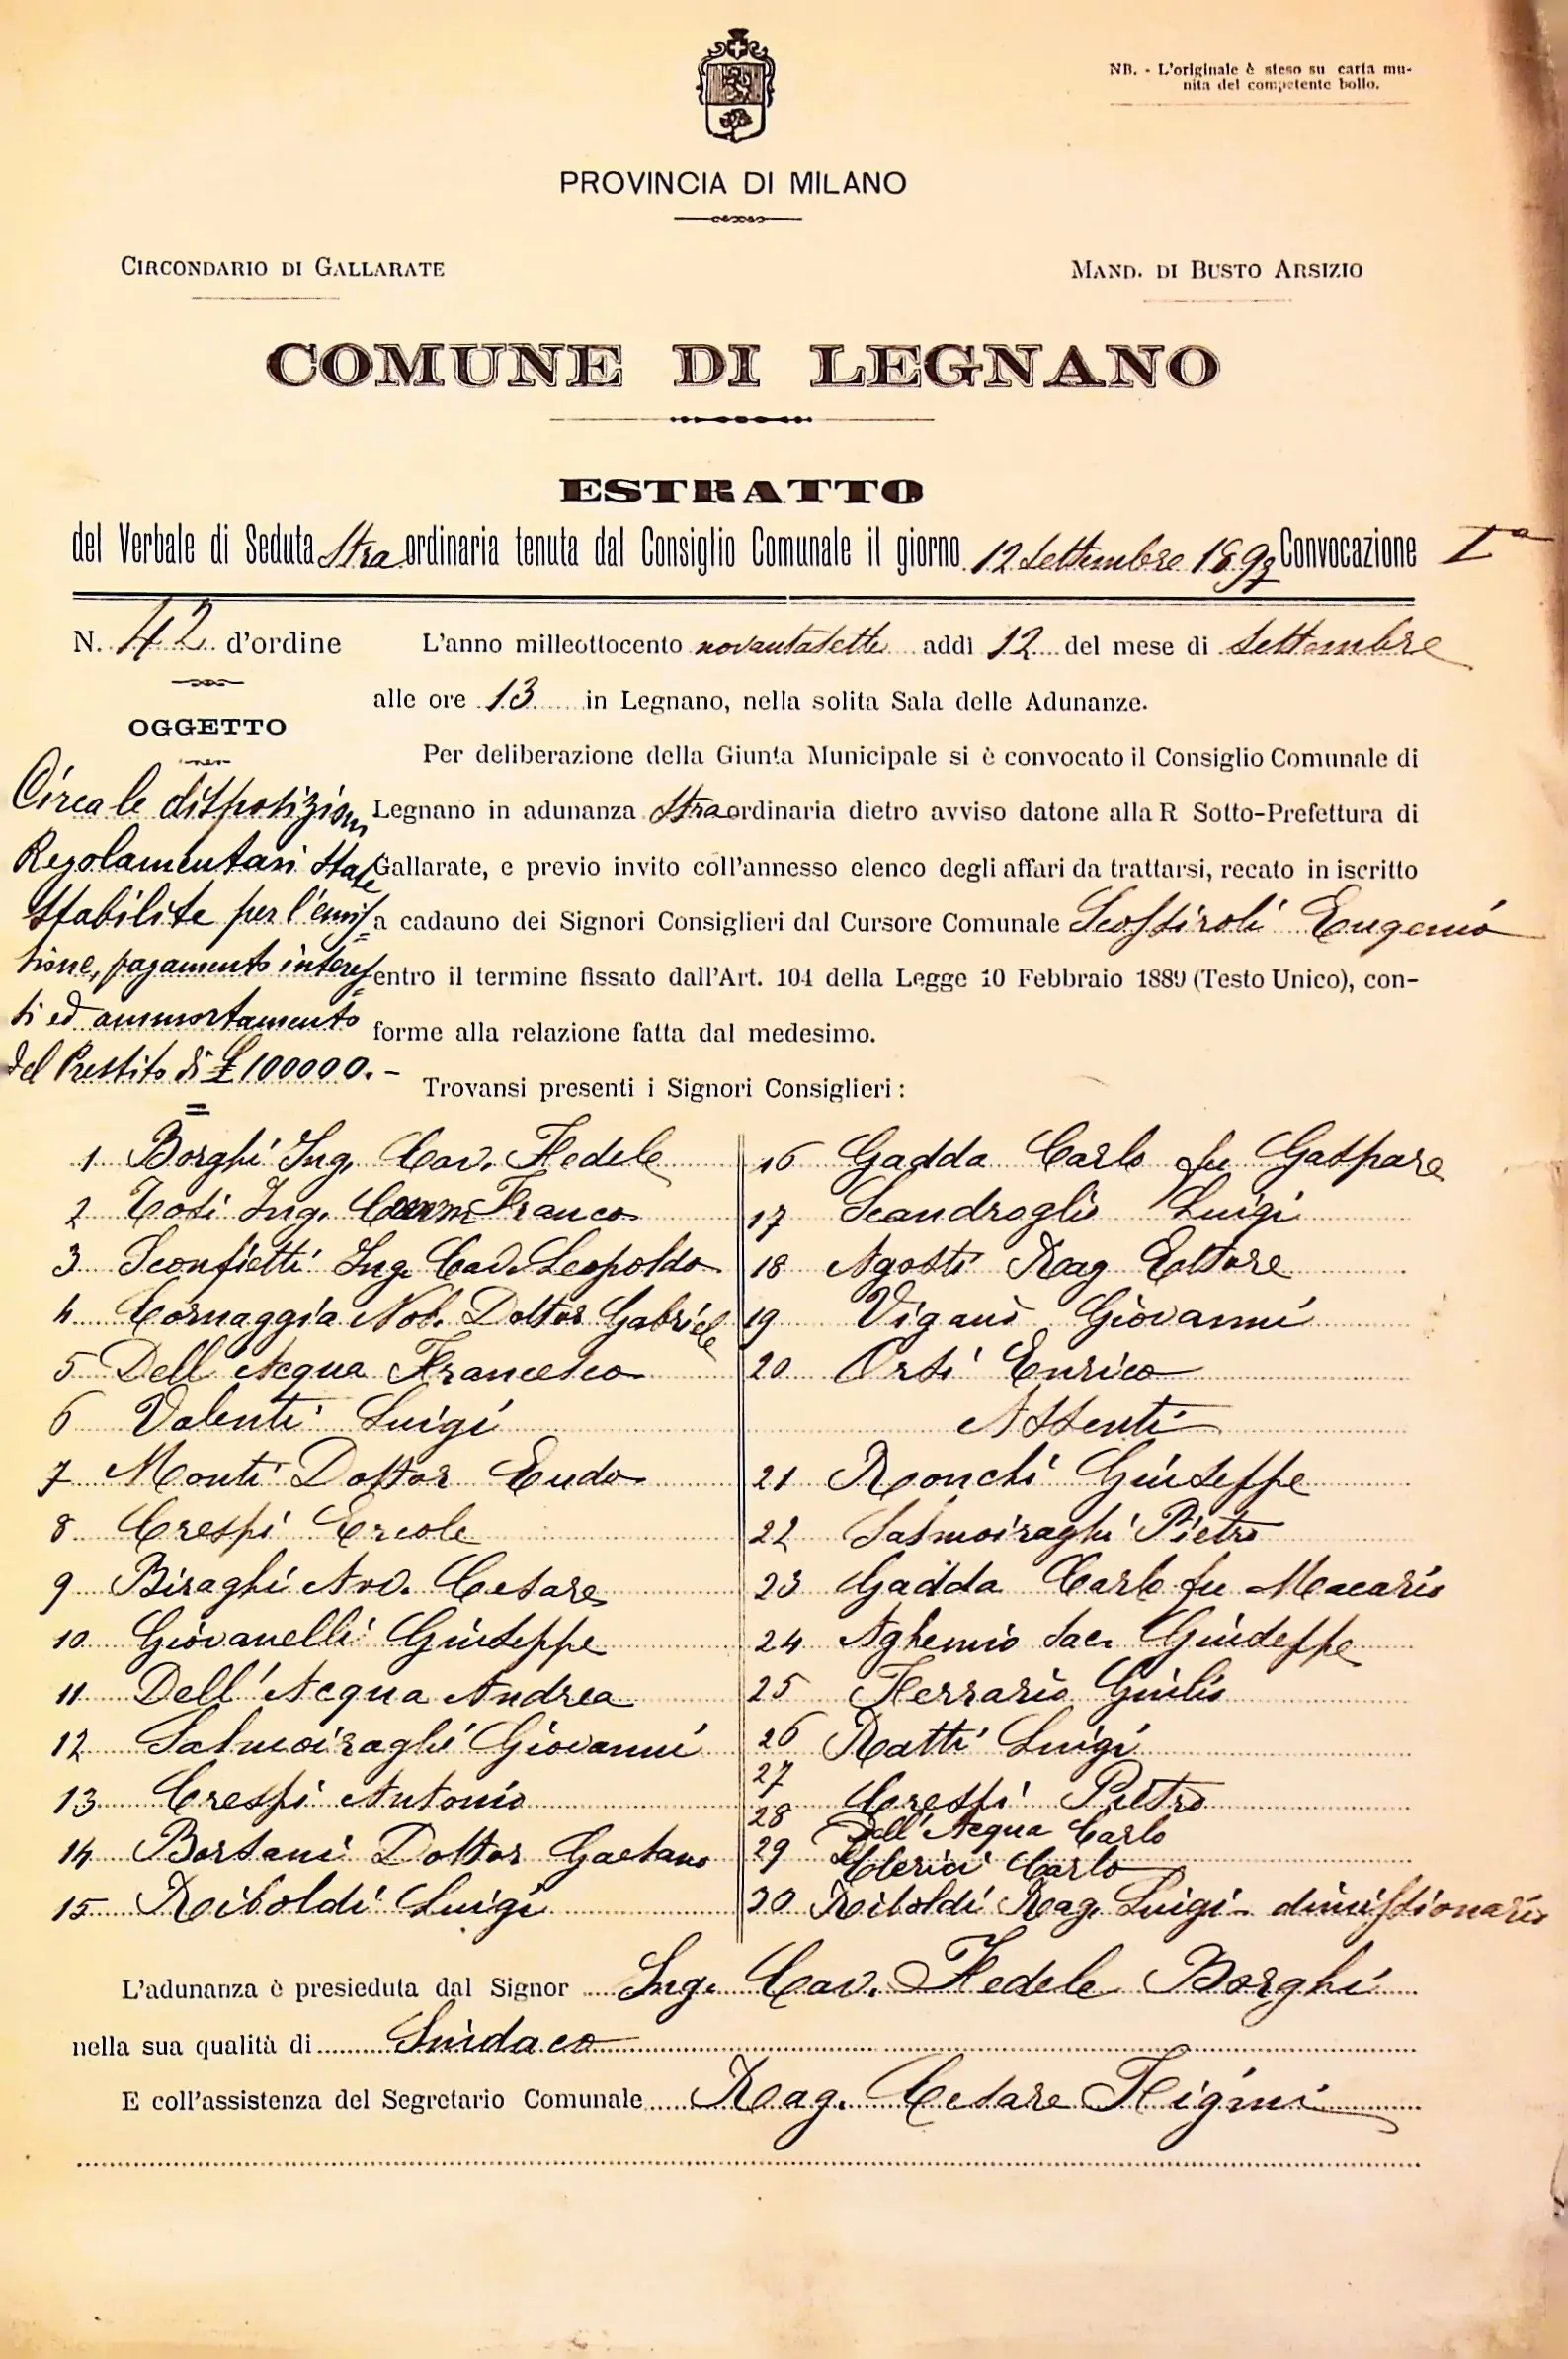 NB. - L'originale è steso su carta mu-
nita del competente bollo.
PROVINCIA DI MILANO
CIRCONDARIO DI GALLARATE
MAND. DI BUSTO ARSIZIO
COMUNE DI LEGNANO
ESTRATTO
del Verbale di Seduta Straordinaria tenuta dal Consiglio Comunale il giorno 12 Settembre 1897 Convocazione Iª
N. 42 d'ordine
OGGETTO
Circa le disposizioni
Regolamentari state
stabilite per l'emis=
sione, pagamento interes=
si ed ammortamento
del Prestito di £ 100000.-
L'anno milleottocento novantasette addì 12 del mese di Settembre
alle ore 13 in Legnano, nella solita Sala delle Adunanze.
Per deliberazione della Giunta Municipale si è convocato il Consiglio Comunale di
Legnano in adunanza Straordinaria dietro avviso datone alla R Sotto-Prefettura di
Gallarate, e previo invito coll'annesso elenco degli affari da trattarsi, recato in iscritto
a cadauno dei Signori Consiglieri dal Cursore Comunale Scossiroli Eugenio
entro il termine fissato dall'Art. 104 della Legge 10 Febbraio 1889 (Testo Unico), con-
forme alla relazione fatta dal medesimo.
Trovansi presenti i Signori Consiglieri:
1 Borghi Ing. Cav. Fedele
2 Tosi Ing. Comm Franco
3 Sconfietti Ing. Cav. Leopoldo
4 Cornaggia Nob. Dottor Gabriele
5 Dell'Acqua Francesco
6 Valenti Luigi
7 Monti Dottor Eudo
8 Crespi Ercole
9 Biraghi Avv. Cesare
10 Giovanelli Giuseppe
11 Dell'Acqua Andrea
12 Salmoiraghi Giovanni
13 Crespi Antonio
14 Borsani Dottor Gaetano
15 Riboldi Luigi
16 Gadda Carlo fu Gaspare
17 Scandroglio Luigi
18 Agosti Rag Ettore
19 Viganò Giovanni
20 Orsi Enrico
Assenti
21 Ronchi Giuseppe
22 Salmoiraghi Pietro
23 Gadda Carlo fu Macario
24 Aghemio Sac. Giuseppe
25 Ferrario Giulio
26 Ratti Luigi
27 Crespi Pietro
28 Dell'Acqua Carlo
29 Clerici Carlo
30 Riboldi Rag. Luigi - dimissionario
L'adunanza è presieduta dal Signor Ing. Cav. Fedele Borghi
nella sua qualità di Sindaco
E coll'assistenza del Segretario Comunale Rag. Cesare Figini